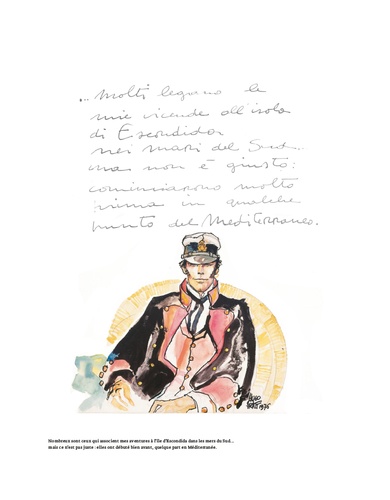 ... molti legano le
mie vicende all'isola
di Escondida
nei mari del Sud..
ma non è giusto:
cominciarono molto
prima in qualche
punto del Mediterraneo.
Nombreux sont ceux qui associent mes aventures à l'île d'Escondida dans les mers du Sud...
mais ce n'est pas juste : elles ont débuté bien avant, quelque part en Méditerranée.